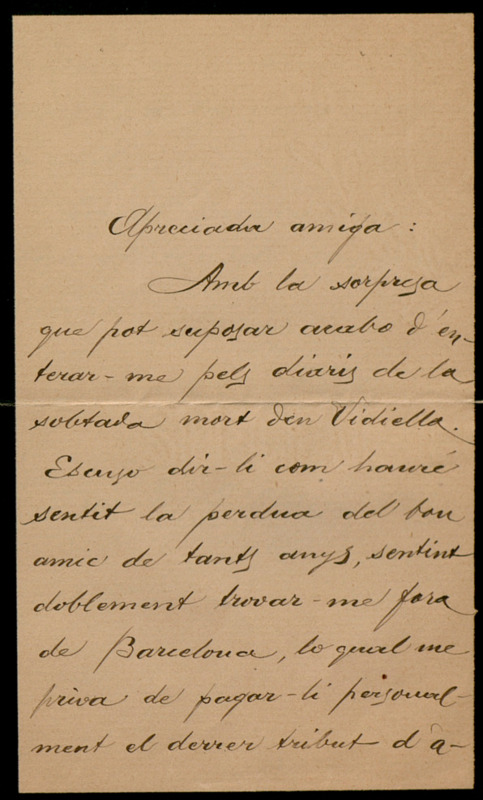 Apreciada amiga :
Amb la sorpresa
que pot suposar acabo d'en-
terar-me pels diaris de la
sobtada mort den Vidiella.
Escuso dir-li com hauré
sentit la perdua del bon
amic de tants anys, sentint
doblement trovar-me fora
de Barcelona, lo qual me
priva de pagar-li personal-
ment el derrer tribut d'a-